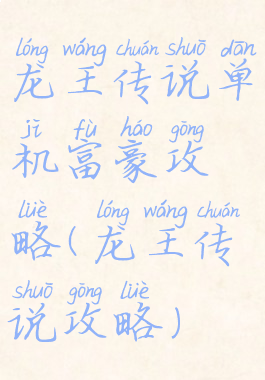 lóng wáng chuán shuō dān
龙王传说单
jī fù háo gōng
机富豪攻
lüè lóng wáng chuán
略(龙王传
shuō gōng lüè
说攻略)